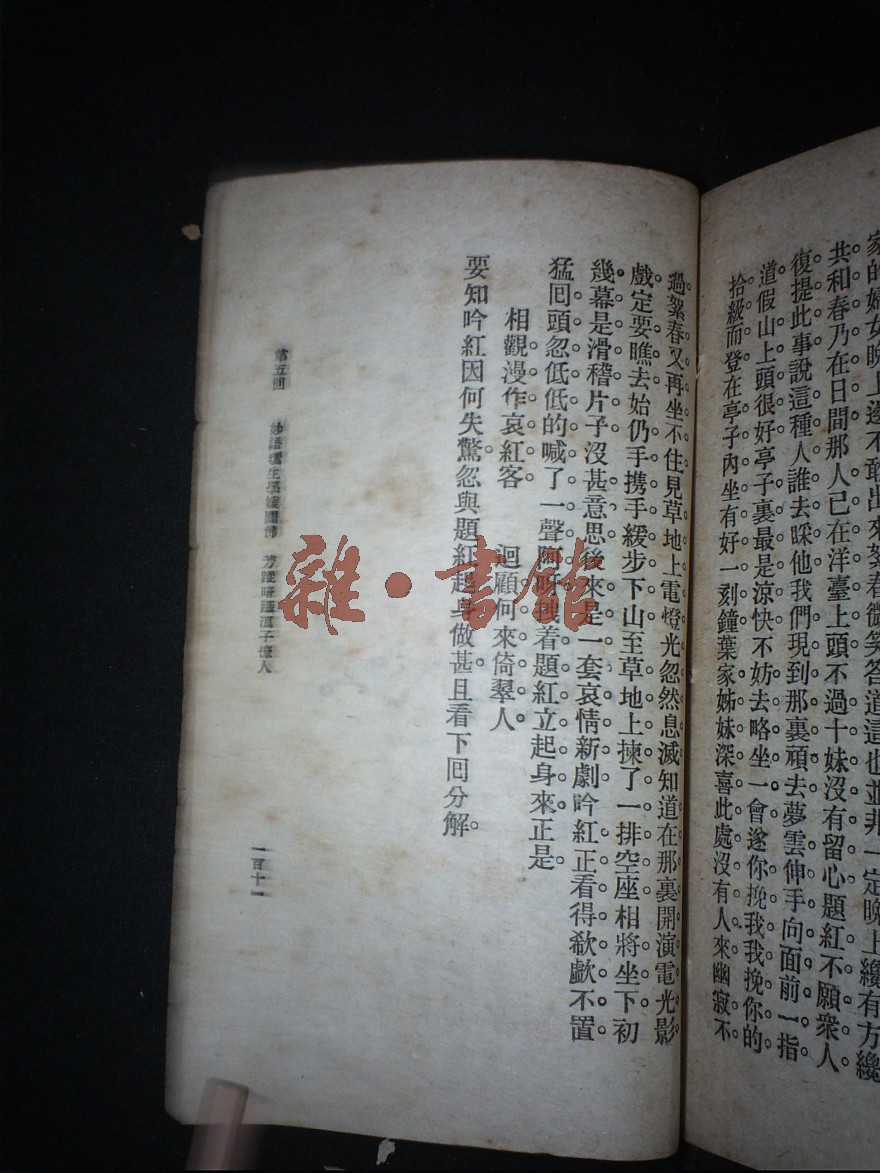 家的婦女晚上邊不敢出來絮春微笑答道這也並非一定晚上纔有方纔
共和春乃在日間那人已在洋臺上頭不過十妹沒有留心題紅不願衆人
復提此事說這種人誰去睬他我們現到那裏頑去夢雲伸手向面前一指
道假山上頭很好亭子裏最是涼快不妨去略坐一會遂你挽我我挽你的
拾級而登在亭子內坐有好一刻鐘葉家姊妹深喜此處沒有人來幽寂不
過絮春又再坐不住見草地上電燈光忽然息滅知道在那裏開演電光影
戲定要瞧去始仍手攜手緩步下山至草地上揀了一排空座相將坐下初
幾幕是滑稽片子沒甚意思後來是一套哀情新劇吟紅正看得欷歔不置
猛囘頭忽低低的喊了一聲阿呀拽着題紅立起身來正是
相觀漫作哀紅客 迴顧何來倚翠人
要知吟紅因何失驚忽與題紅起身做甚且看下囘分解
第五囘
一百十一
雜·書館